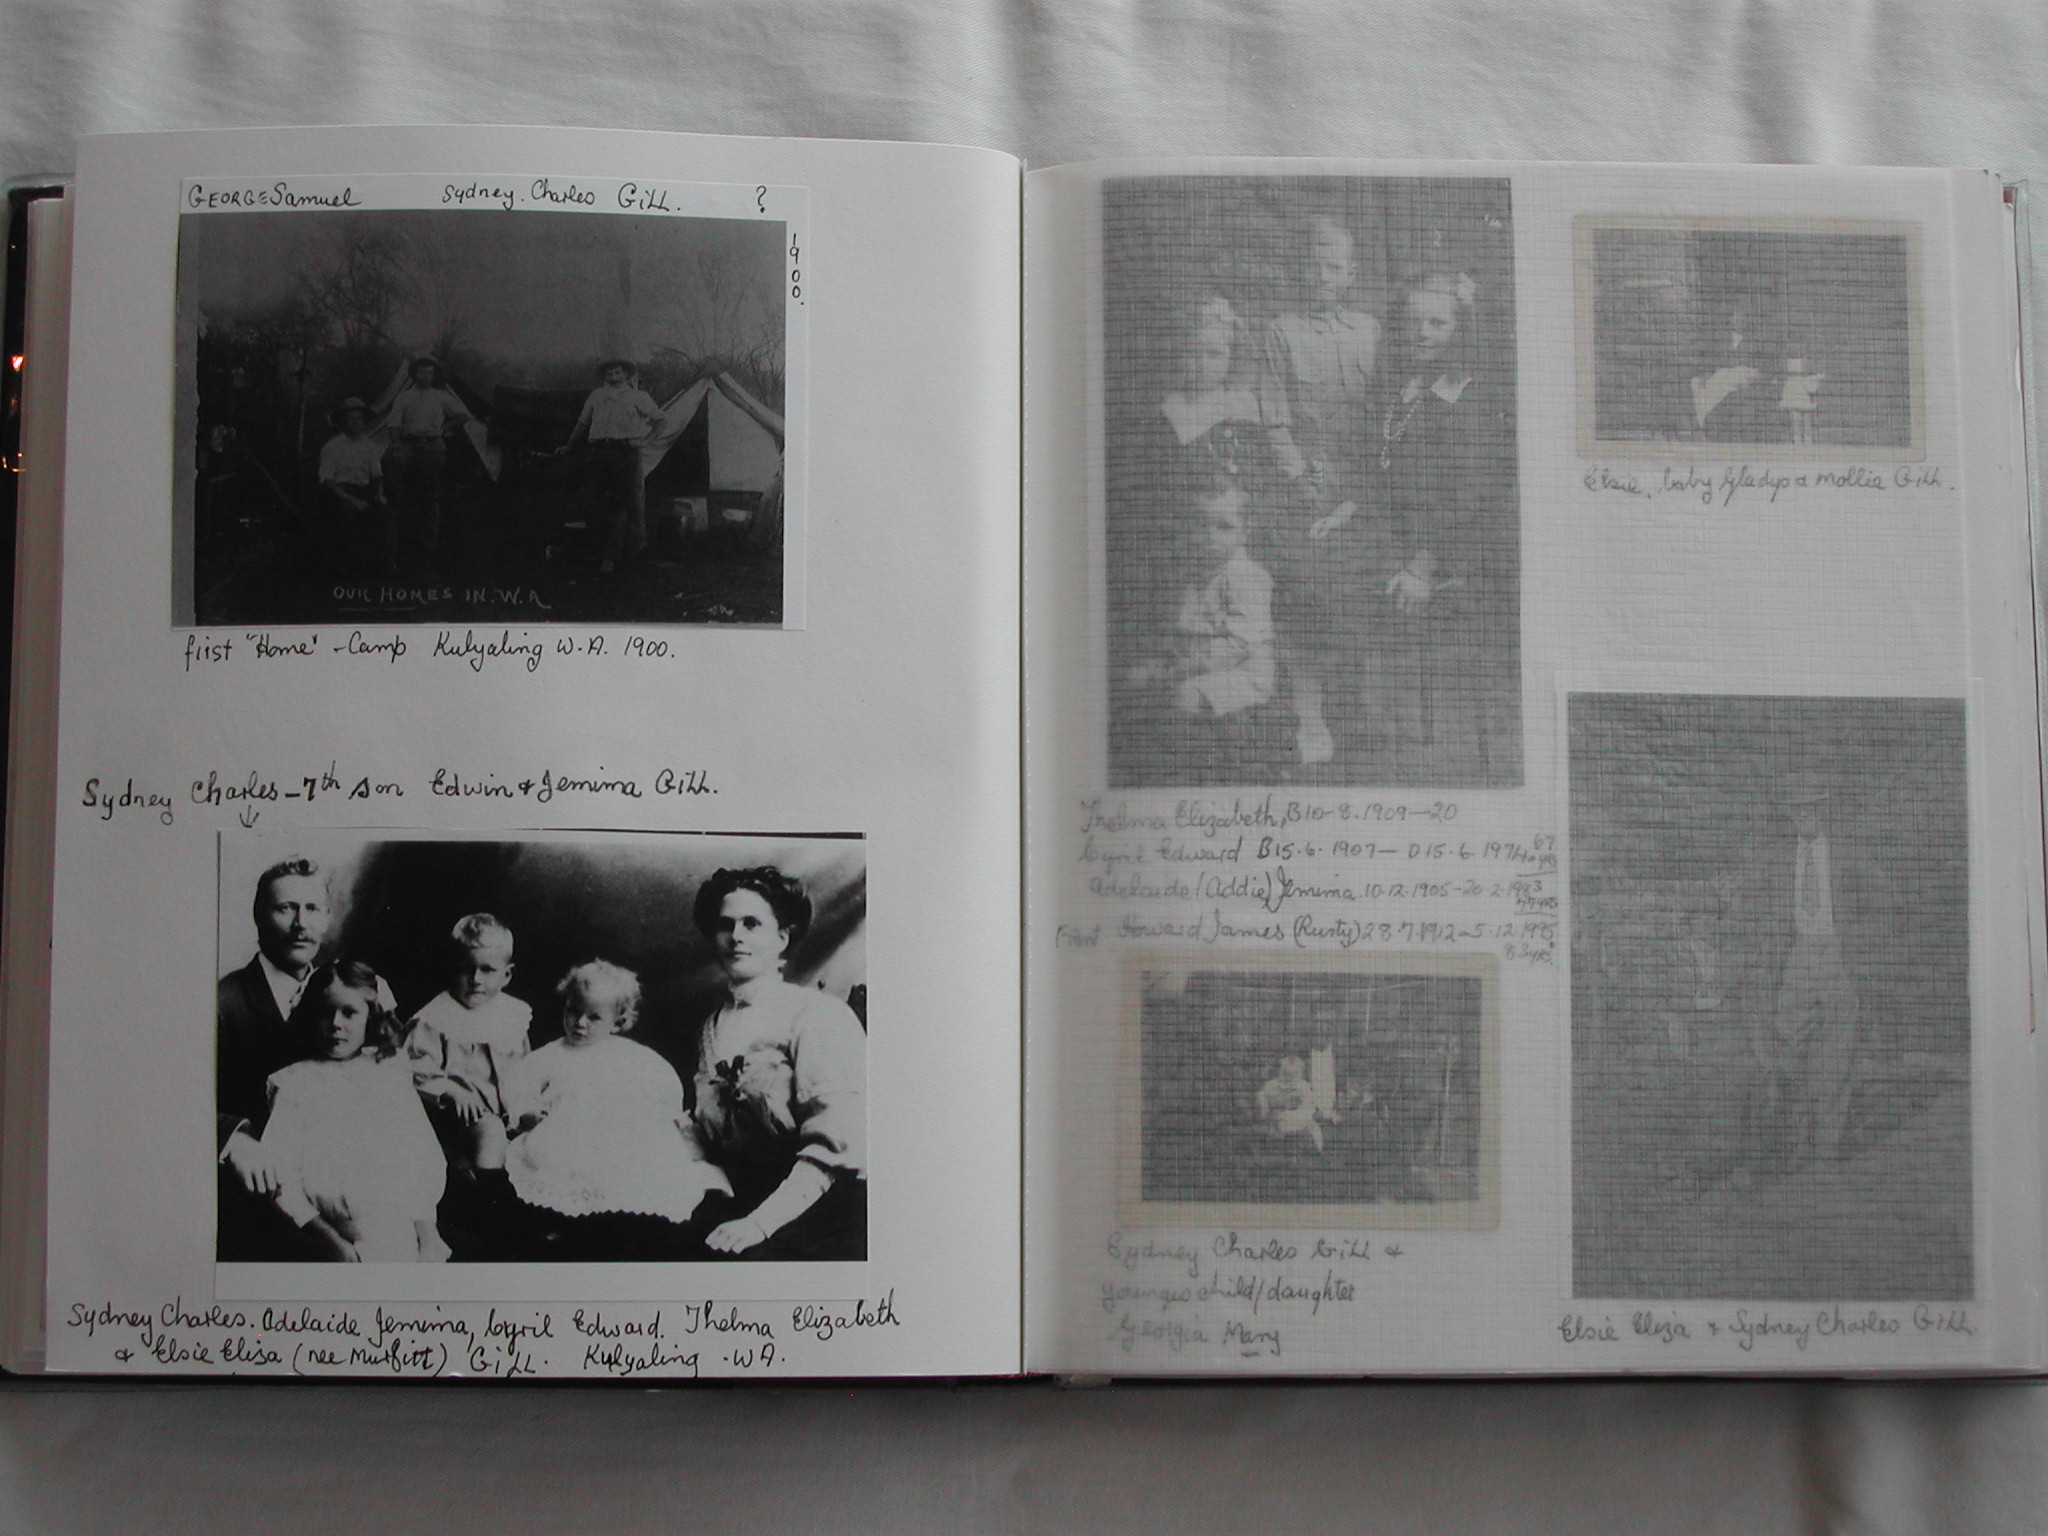 GEORGE Samuel Sydney. Charles GiLL. ?
1900.
OUR HOMES IN. W.A
first "Home" - Camp Kulyaling W.A. 1900.
Sydney Charles - 7th son Edwin & Jemima GiLL.
Sydney Charles. Adelaide Jemima, Cyril Edward. Thelma Elizabeth
& Elsie Eliza (nee Murfitt) GiLL. Kulyaling .WA.
Thelma Elizabeth, B10-8.1909-20
Cyril Edward B15.6.1907 - D15.6.1974 67
Adelaide (Addie) Jemima. 10.12.1905-20-2-1983
77yrs
Front Howard James (Rusty) 28.7.1912-5.12.1995
83yrs.
Sydney Charles GiLL &
child/daughter
Georgia Mary
Elsie, baby Gladys & Mollie GiLL.
Elsie Eliza & Sydney Charles GiLL